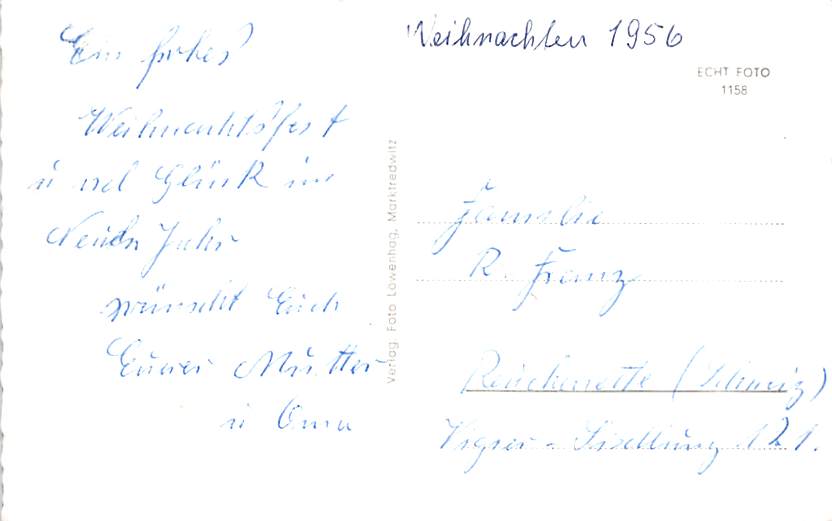 Weihnachten 1956
ECHT FOTO
1158
Ein frohes
Weihnachtsfest
u viel Glück im
Neuen Jahr
wünscht Euch
Eurer Mutter
u Oma
Verlag Foto Löwenhag, Marktredwitz
Familie
R. Franz
Reuchenette (Schweiz)
Siedlung 121.